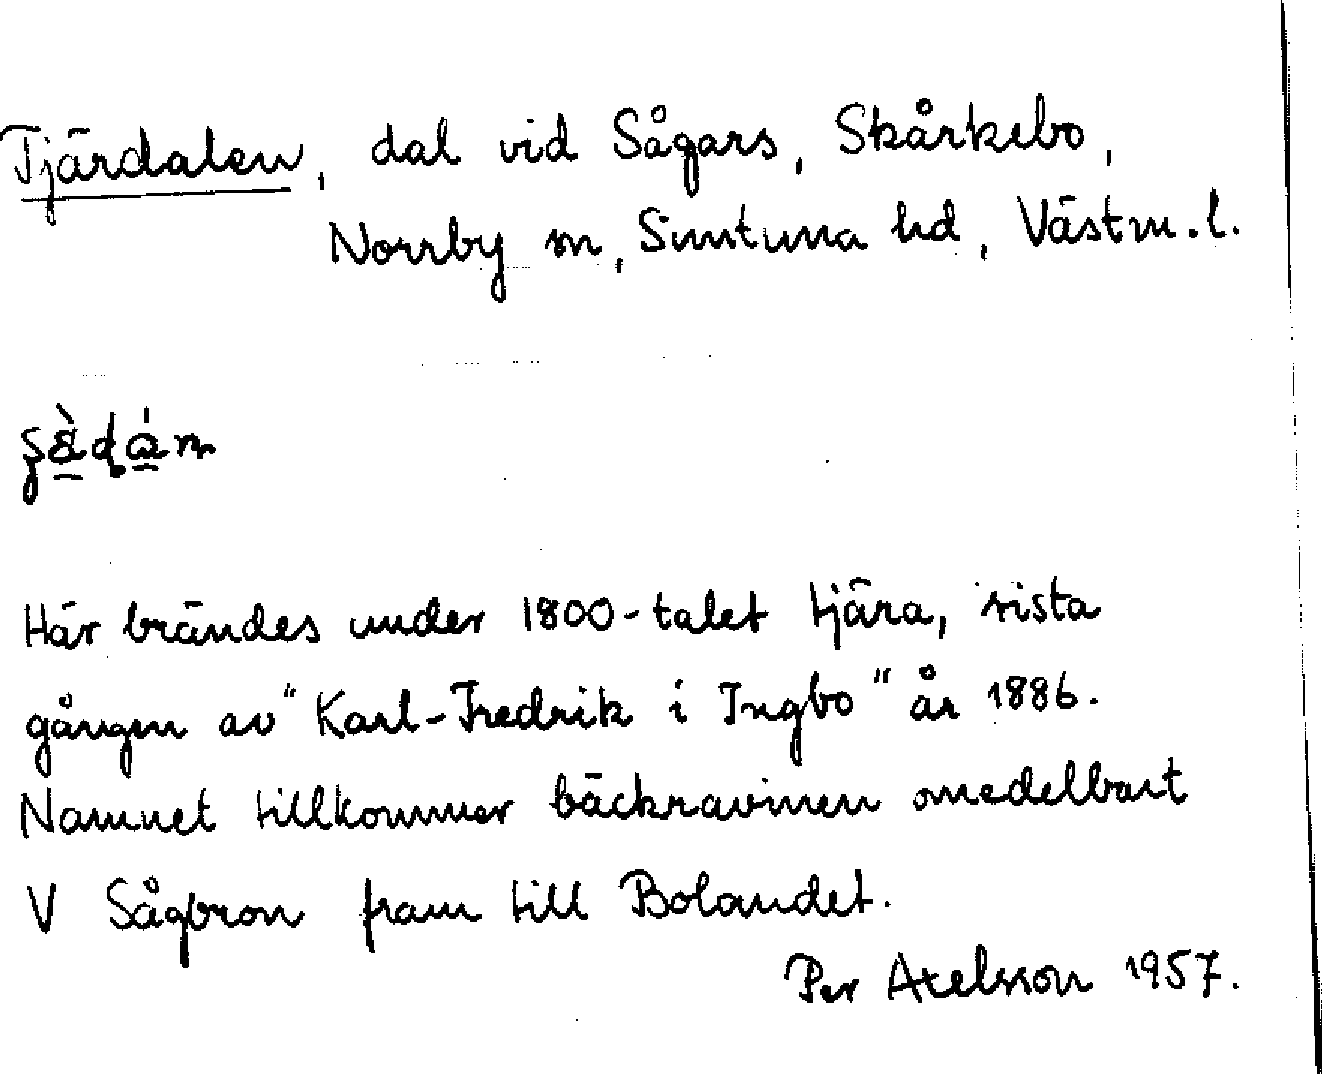 Tjärdalen, dal vid Sågars, Skårkebo,
Norrby sn, Simtuna hd, Västm. l.
Här brändes under 1800-talet tjära, sista
gången av "Karl-Fredrik i Ingbo" år 1886.
Namnet tillkommer bäckravinen omedelbart
V Sågbron fram till Bolandet.
Per Axelsson 1957.